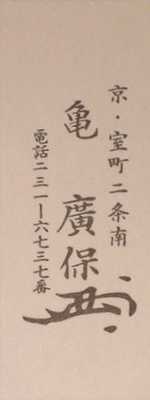 京・室町二条南
亀廣保
電話二三一ー六七三七番